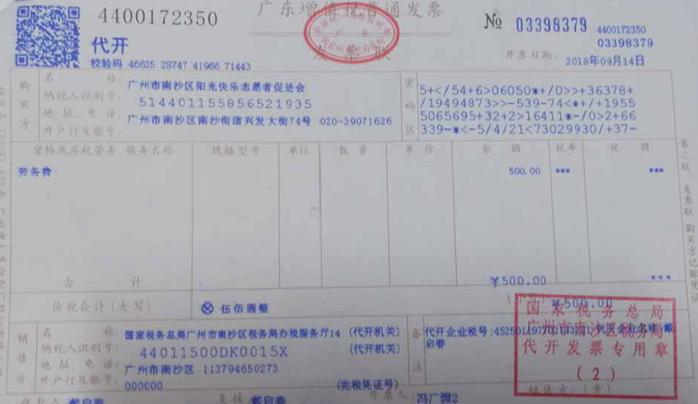 4400172350
广东增值税普通发票
№ 03398379
4400172350
03398379
代开
校验码 46635 28747 41966 71443
开票日期: 2018年09月14日
购买方
名称: 广州市南沙区阳光快乐志愿者促进会
纳税人识别号: 514401155856521935
地址、电话: 广州市南沙区南沙街道兴发大街74号 020-39071626
开户行及账号:
密码区
5+</54+6>06050*+/0>>+36378+
/19494873>>-539-74<*+/+1955
5065695+32+2>16411*-/0>2+66
339-*<-5/4/21<73029930/+37-
货物或应税劳务、服务名称 规格型号 单位 数量 单价 金额 税率 税额
劳务费 500.00 *** ***
合计 ¥500.00 ***
价税合计(大写) ⊗ 伍佰圆整 ¥500.00
销售方
名称: 国家税务总局广州市南沙区税务局办税服务厅14 (代开机关)
纳税人识别号: 44011500DK0015X (代开机关)
地址、电话: 广州市南沙区 113794650273
开户行及账号: 000000 (完税凭证号)
备注
代开企业税号:
代开企业名称:戴
启春
国家税务总局
广州市南沙区税务局
代开发票专用章
(2)
收款人: 戴启春 复核: 戴启春 开票人: 冯广源2 销售方:(章)
第二联:发票联 购买方记